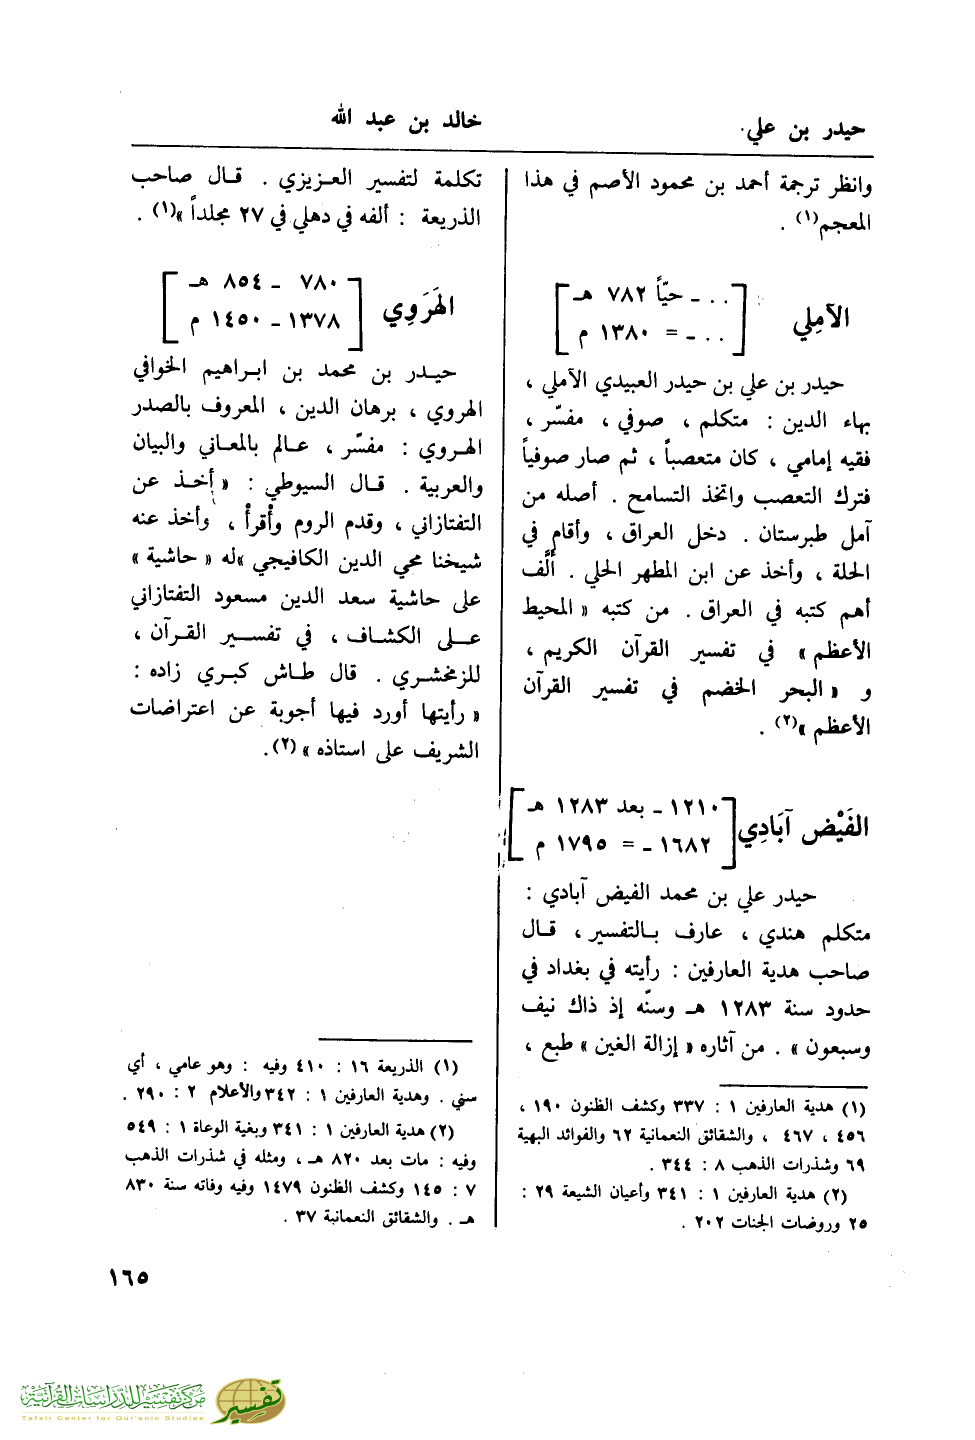 حيدر بن علي
خالد بن عبد الله
وانظر ترجمة أحمد بن محمود الأصم في هذا
المعجم(١) .
الآمِلي
[ . . ـ حيّاً ٧٨٢ هـ
. . ـ = ١٣٨٠ م ]
حيدر بن علي بن حيدر العبيدي الآملي ،
بهاء الدين : متكلم ، صوفي ، مفسّر ،
فقيه إمامي ، كان متعصباً ، ثم صار صوفياً
فترك التعصب واتخذ التسامح . أصله من
آمل طبرستان . دخل العراق ، وأقام في
الحلة ، وأخذ عن ابن المطهر الحلي . ألَّف
أهم كتبه في العراق . من كتبه « المحيط
الأعظم » في تفسير القرآن الكريم ،
و « البحر الخضم في تفسير القرآن
الأعظم »(٢) .
الفَيْض آبَادِي
[ ١٢١٠ ـ بعد ١٢٨٣ هـ
١٦٨٢ ـ = ١٧٩٥ م ]
حيدر علي بن محمد الفيض آبادي :
متكلم هندي ، عارف بالتفسير ، قال
صاحب هدية العارفين : رأيته في بغداد في
حدود سنة ١٢٨٣ هـ وسنّه إذ ذاك نيف
وسبعون » . من آثاره « إزالة الغين » طبع ،
(١) هدية العارفين ١ : ٣٣٧ وكشف الظنون ١٩٠ ،
٤٥٦ ، ٤٦٧ ، والشقائق النعمانية ٦٢ والفوائد البهية
٦٩ وشذرات الذهب ٨ : ٣٤٤ .
(٢) هدية العارفين ١ : ٣٤١ وأعيان الشيعة ٢٩ :
٢٥ وروضات الجنات ٢٠٢ .
تكلمة لتفسير العزيزي . قال صاحب
الذريعة : ألفه في دهلي في ٢٧ مجلداً »(١) .
الهَرَوِي
[ ٧٨٠ ـ ٨٥٤ هـ
١٣٧٨ ـ ١٤٥٠ م ]
حيدر بن محمد بن ابراهيم الخوافي
الهروي ، برهان الدين ، المعروف بالصدر
الهروي : مفسّر ، عالم بالمعاني والبيان
والعربية . قال السيوطي : « أخذ عن
التفتازاني ، وقدم الروم وأقرأ ، وأخذ عنه
شيخنا محي الدين الكافيجي »له « حاشية »
على حاشية سعد الدين مسعود التفتازاني
على الكشاف ، في تفسير القرآن ،
للزمخشري . قال طاش كبري زاده :
« رأيتها أورد فيها أجوبة عن اعتراضات
الشريف على استاذه »(٢).
(١) الذريعة ١٦ : ٤١٠ وفيه : وهو عامي ، أي
سني . وهدية العارفين ١ : ٣٤٢ والأعلام ٢ : ٢٩٠ .
(٢) هدية العارفين ١ : ٣٤١ وبغية الوعاة ١ : ٥٤٩
وفيه : مات بعد ٨٢٠ هـ ، ومثله في شذرات الذهب
٧ : ١٤٥ وكشف الظنون ١٤٧٩ وفيه وفاته سنة ٨٣٠
هـ . والشقائق النعمانية ٣٧ .
١٦٥
مركز تفسير للدراسات القرآنية
Tafsir Center for Qur'anic Studies
تفسير